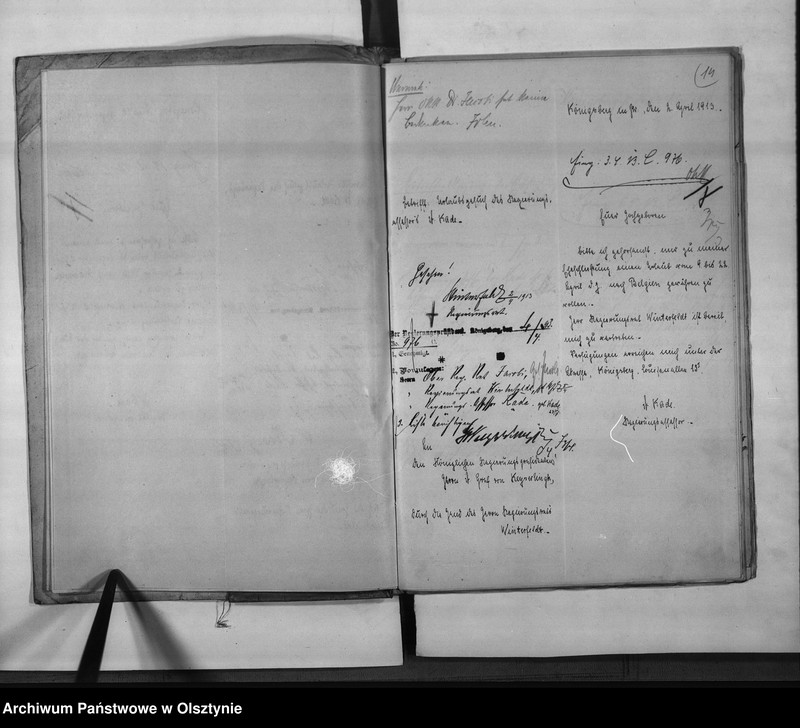 (14)
Vermerk:
Herr ORR Dr. Jacobi hat keine
Bedenken.
Königsberg in Pr., den 2. April 1913.
Eing. 3.4. B. C. 976.
Betrifft: Urlaubsgesuch des Regierungs-
assessors Dr. Kade.
Euer Hochgeboren
bitte ich gehorsamst, mir zu meiner
Eheschließung einen Urlaub vom 9. bis 22.
April d. J. nach Belgien gewähren zu
wollen.
Herr Regierungsrat Winterfeldt ist bereit
mich zu vertreten.
Verfügungen erreichen mich unter der
Adresse, Königsberg, Luisenallee
Dr. Kade.
Regierungsassessor.
Gesehen!
Winterfeldt 2/4 1913
Regierungsrat.
Der Regierungspräsident. Königsberg, den 4/4
No. 976
1. Genehmigt.
2. Vorzulegen:
Herrn Ober Reg. Rat Jacobi,
" Regierungsrat Winterfeldt,
" Regierungs-Assessor Kade.
3.
An
den Königlichen Regierungspräsidenten
Herrn Dr. Graf von Keyserlingk,
durch die Hand des Herrn Regierungsrats
Winterfeldt.
Archiwum Państwowe w Olsztynie